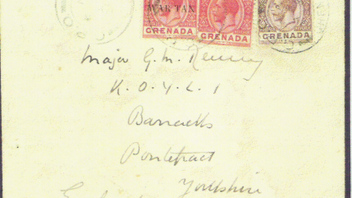 WAR TAX
GRENADA GRENADA GRENADA
Major G. M.
K.O.Y.L.I
Barracks
Pontefract
Yorkshire